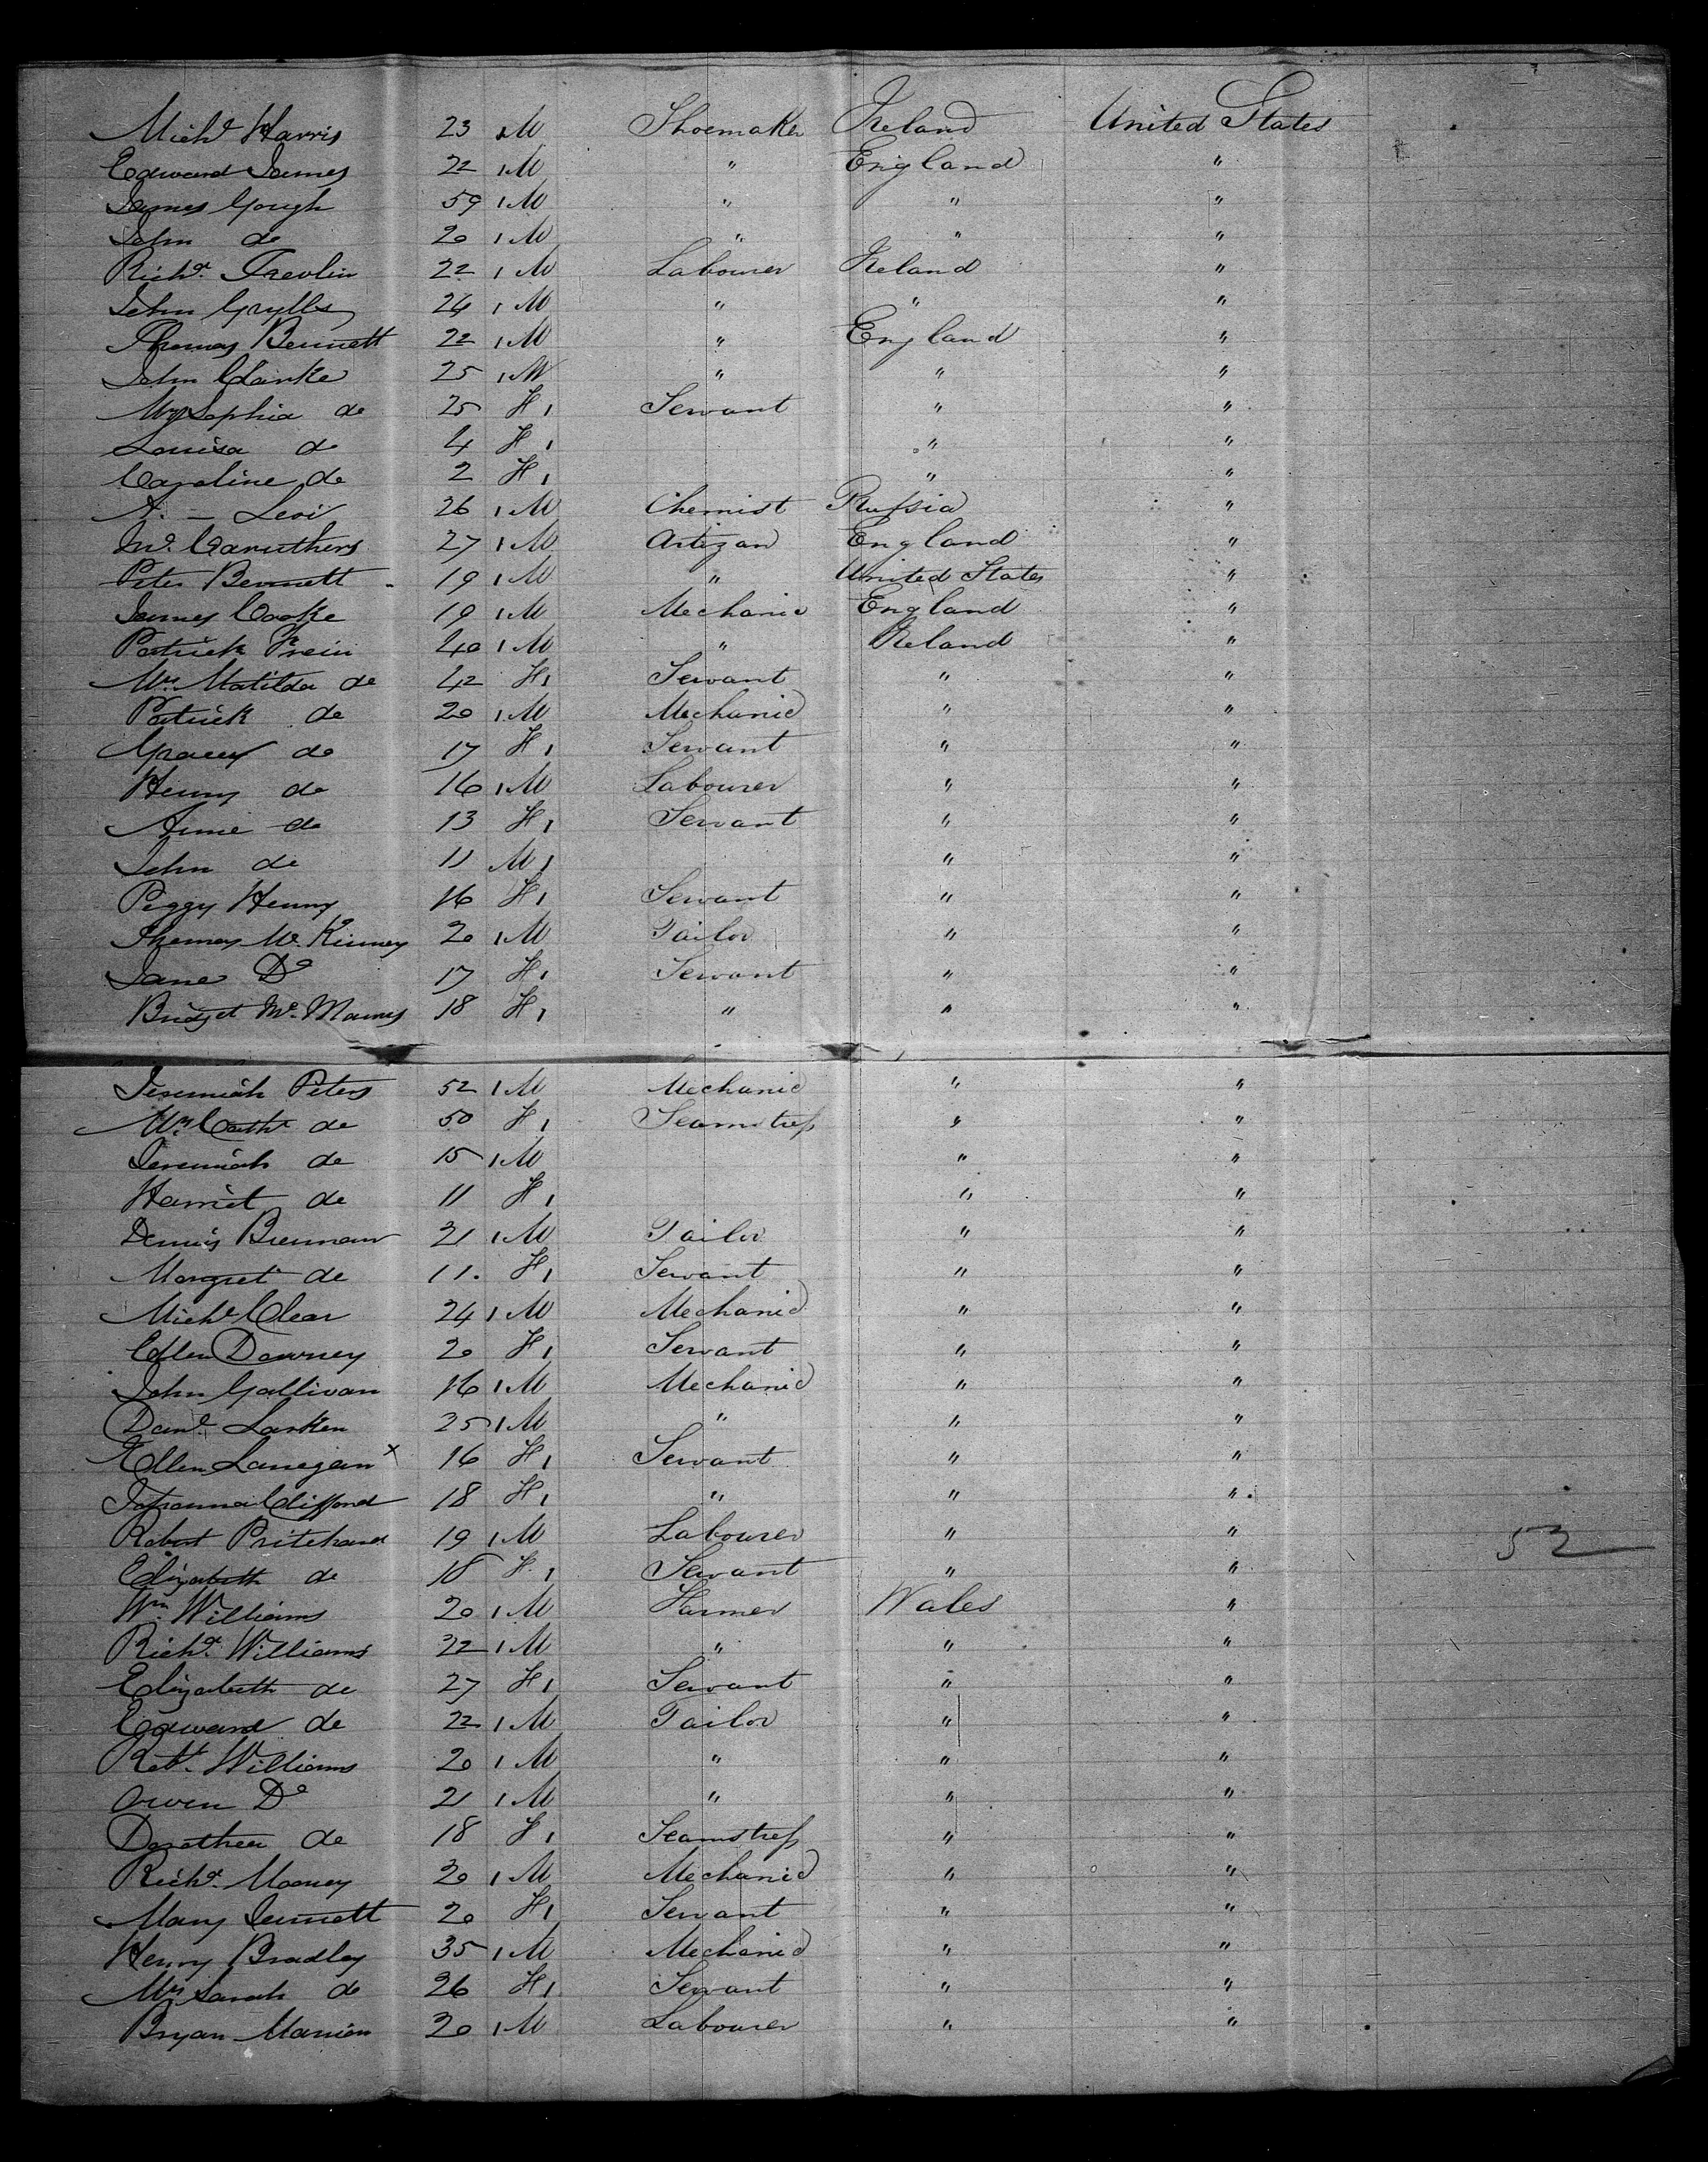 Mich<sup>l</sup> Harris 23 M Shoemaker Ireland United States
Edward James 22 M " England "
James Gough 59 M " " "
John do 20 M " " "
Rich<sup>d</sup>. Trevlin 22 M Labourer Ireland "
John Grylls 24 M " " "
Thomas Bennett 22 M " England "
John Clarke 25 M " " "
Mrs Sophia do 25 F Servant " "
Louisa do 4 F " "
Caroline do 2 F " "
A. - Levi 26 M Chemist Russia "
Jno. Caruthers 27 M Artizan England "
Peter Bennett 19 M " United States "
James Cooke 19 M Mechanic England "
Patrick 40 M " Ireland "
Mrs Matilda do 42 F Servant " "
Patrick do 20 M Mechanic " "
Gracey do 17 F Servant " "
Henry do 16 M Labourer " "
Annie do 13 F Servant " "
John do 11 M " "
Peggy Henry 16 F Servant " "
Thomas McKinney 20 M Tailor " "
Jane Do 17 F Servant " "
Bridget Mc. 18 F " " "
Jeremiah Peters 52 M Mechanic " "
Mrs Cath<sup>e</sup> do 50 F Seamstress " "
Jeremiah do 15 M " "
Harriet do 11 F " "
Dennis Brennan 21 M Tailor " "
Margret do 11. F Servant " "
Mich<sup>l</sup> Clear 24 M Mechanic " "
Ellen Downey 20 F Servant " "
John Gallivan 16 M Mechanic " "
Dan<sup>l</sup>. Larken 25 M " " "
Ellen Lanegan x 16 F Servant " "
Johanna Clifford 18 F " " "
Robert Pritchard 19 M Labourer " "
53
Elizabeth do 18 F Servant " "
Wm Williams 20 M Farmer Wales "
Rich<sup>d</sup>. Williams 22 M " " "
Elizabeth do 27 F Servant " "
Edward do 22 M Tailor " "
Rob<sup>t</sup>. Williams 20 M " " "
Owen Do 21 M " " "
Dorothea do 18 F Seamstress " "
Rich<sup>d</sup>. Mooney 20 M Mechanic " "
Mary Jennett 20 F Servant " "
Henry Bradley 35 M Mechanic " "
Mrs Sarah do 26 F Servant " "
Bryan Manion 30 M Labourer " "